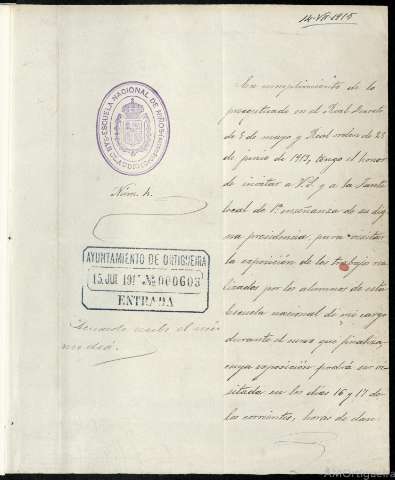 14-VII-1915
ESCUELA NACIONAL DE NIÑOS
Núm. 4.
AYUNTAMIENTO DE ORTIGUEIRA
15 JUL 191 Nº 000603
ENTRADA
En cumplimiento de lo
preceptuado en el Real decreto
de 5 de mayo y Real orden de 25
de junio de 1913, tengo el honor
de invitar a V.S. y a la Junta
local de 1ª enseñanza de su dig
na presidencia, para visitar
la exposición de los trabajos rea
lizados por los alumnos de esta
Escuela nacional de mi cargo
durante el curso que finaliza,
cuya exposición podrá ser vi
sitada en los días 16 y 17 de
los corrientes, horas de
AMOrtigueira